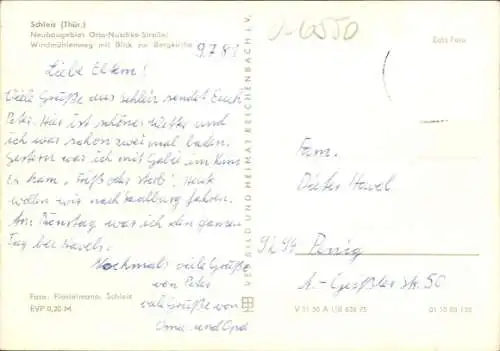 Schleiz (Thür.)
Neubaugebiet Otto-Nuschke-Straße/
Windmühlenweg mit Blick zur Bergkirche
9.7.81
J-6550
Echt Foto
Liebe Eltern!
Viele Grüße aus Schleiz sendet Euch
Peter. Hier ist schönes Wetter und
ich war schon zwei mal baden.
Gestern war ich mit Gabi im Kino
Es kam „Friß oder stirb". Heute
wollen wir nach Saalburg fahren.
Am Dienstag war ich den ganzen
Tag bei Havels.
Nochmals viele Grüße
von Peter
viele Grüße von
Oma und Opa
Foto: Fleischmann, Schleiz
EVP 0,20 M
VEB BILD UND HEIMAT REICHENBACH I. V.
Fam.
Dieter Havel
Penig
A.-Geißler str. 50
V 11 50 A 1/B 626 75
01 10 05 152